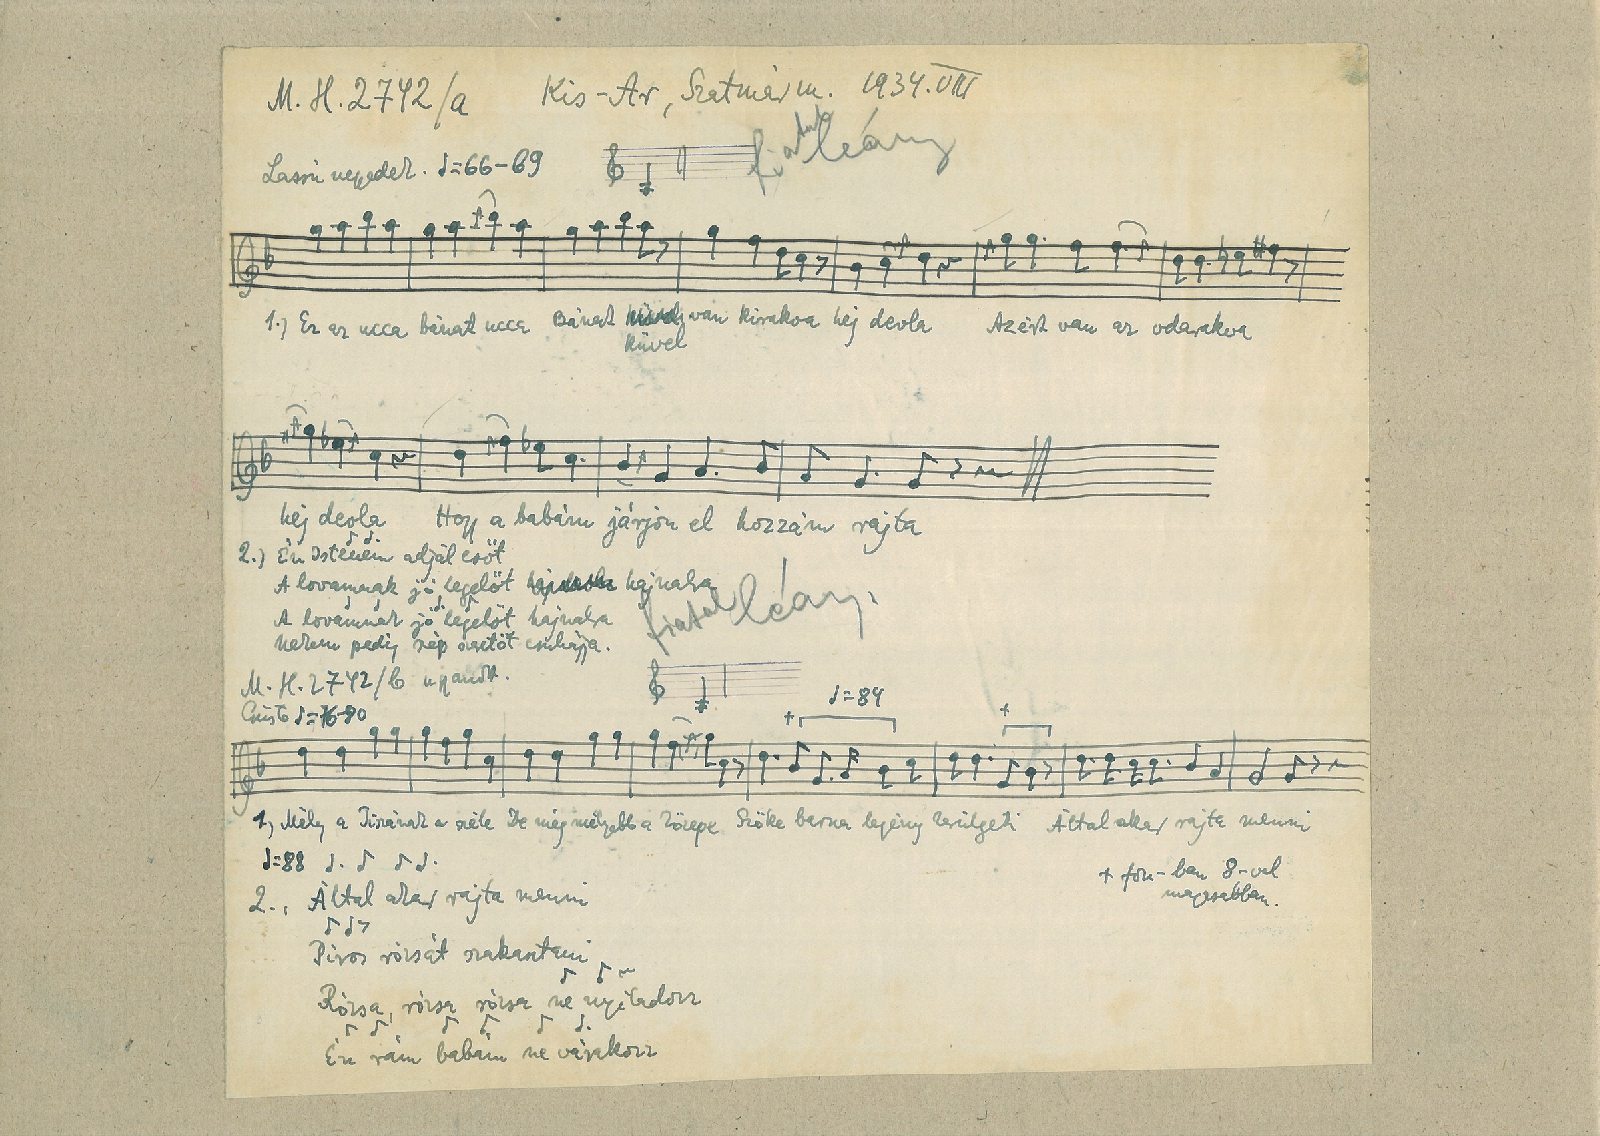 M. H. 2742/a Kis-Ar, Szatmár m. 1934. VIII
Lassú negyedek. ♩=66-69
fiatal leány
1.) Ez az ucca bánat ucca Bánat van kirakva héj deola Azért van az odarakva
kűvel
héj deola Hogy a babám járjon el hozzám rajta
2.) Én Istenem adjál esőt
A lovamnak jó legelőt hajnalra
A lovamnak jó legelőt hajnalra
Nekem pedig szép
fiatal leány.
M. H. 2742/b ugyanott.
Giusto
♩=84
+ +
1, Mély a Tiszának a széle De még mélyebb a közepe Szőke barna legény kerülgeti Által akar rajta menni
♩=88
+ fon-ban 8-val
magasabban.
2., Által akar rajta menni
Piros rózsát szakasztani
Rózsa, rózsa rózsa ne nyiladozz
Én rám babám ne várakozz